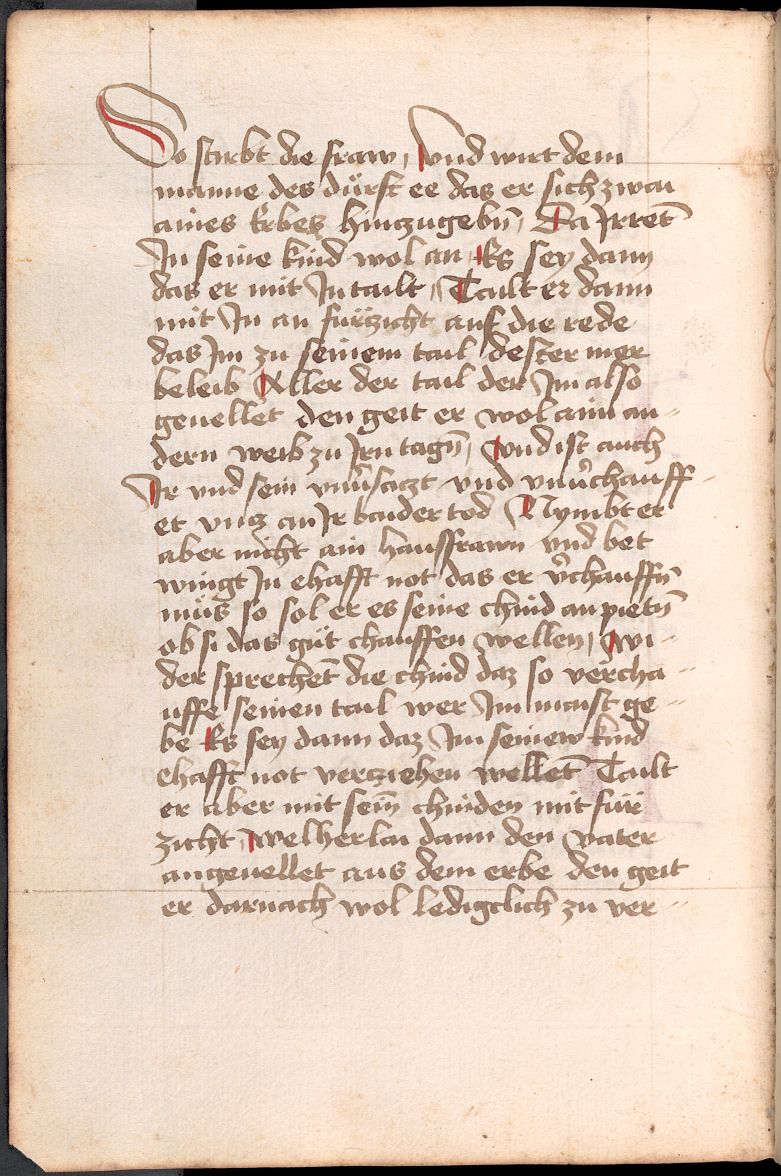 So stirbt die fraw, Vnd wirt dem
manne des dürft ee das er sich zwai
aines Erbes hinzugebn̄, Da Irret̄
In seine kind wol an, Es sey dann
das er mit In tailt, Tailt er dann
mit In an fürczicht auf die rede
das Im zu seinem tail dester mer
beleib Aller der tail der Im also
geuellet den geit er wol aim an-
dern weib zu Irn tagn̄, Vnd ist auch
Ir vnd sein vnuͦsaczt vnd vnuͦchauff-
et vncz an Ir baider tod Nymbt er
aber nicht ain hausfrawn vnd bet
wingt In ehafft not das er v̄chauffn̄
müs so sol er es seine chind an pietn̄
ob si das güt chauffen wellen, Wi-
der sprechet̄ die chind daz so vercha-
uffe seinen tail wer Im maist ge-
be Es sey dann daz Im seinew kind
ehafft not verziehen wellet̄ Tailt
er aber mit sein̄ chinden mit für
zicht, Welherlai dann den vater
angeuellet aus dem erbe den geit
er darnach wol ledigclich zu ver-